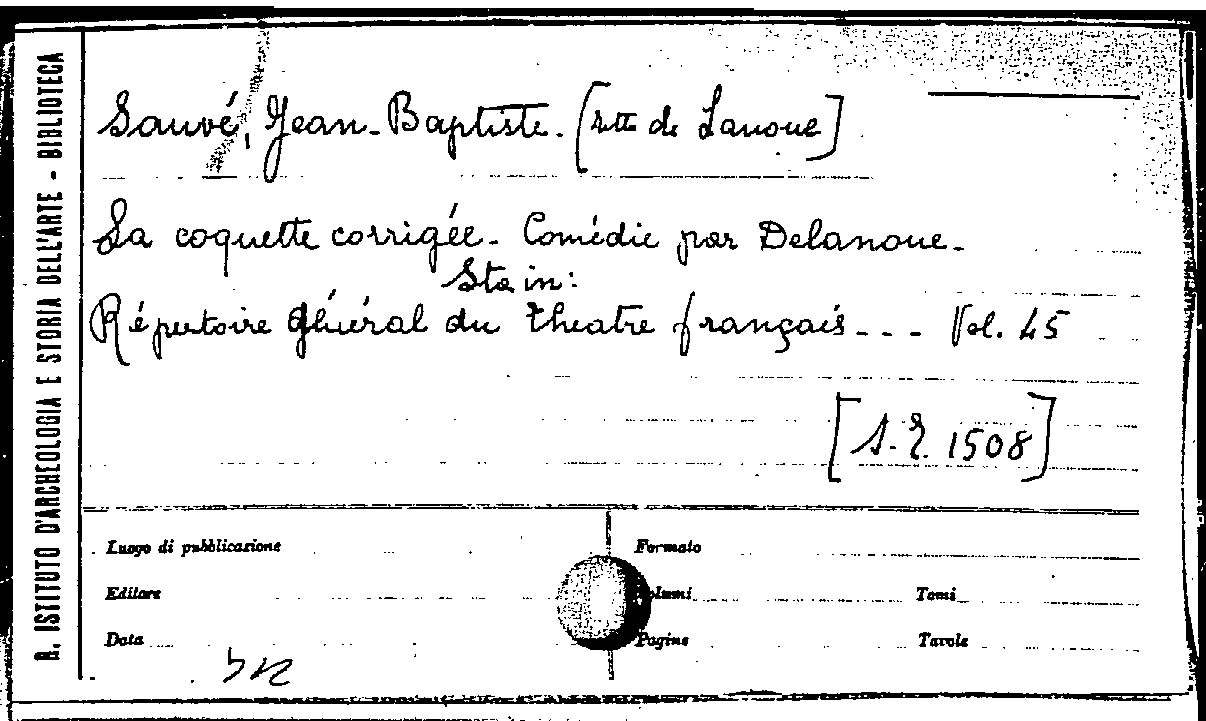 R. ISTITUTO D'ARCHEOLOGIA E STORIA DELL'ARTE - BIBLIOTECA
Sauvé, Jean-Baptiste. [dit de Lanoue]
La coquette corrigée. Comédie par Delanoue.
Sta in:
Répertoire général du theatre français --- Vol. 45
[S.E. 1508]
Luogo di pubblicazione
Formato
Editore
Volumi
Tomi
Data
Pagine
Tavole